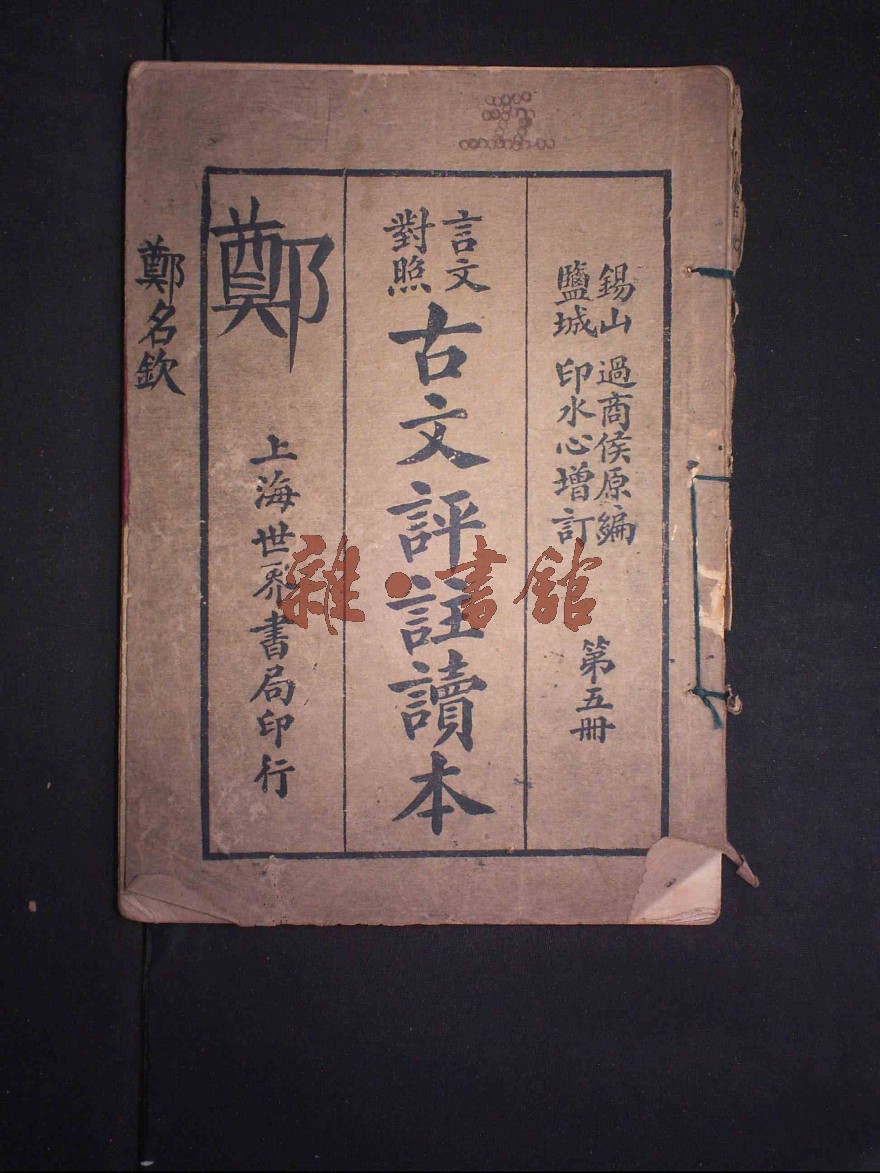 錫山 過商侯原編
鹽城 印水心增訂
第五冊
言文
對照
古文評註讀本
鄭
上海世界書局印行
鄭名欽
雜·書館